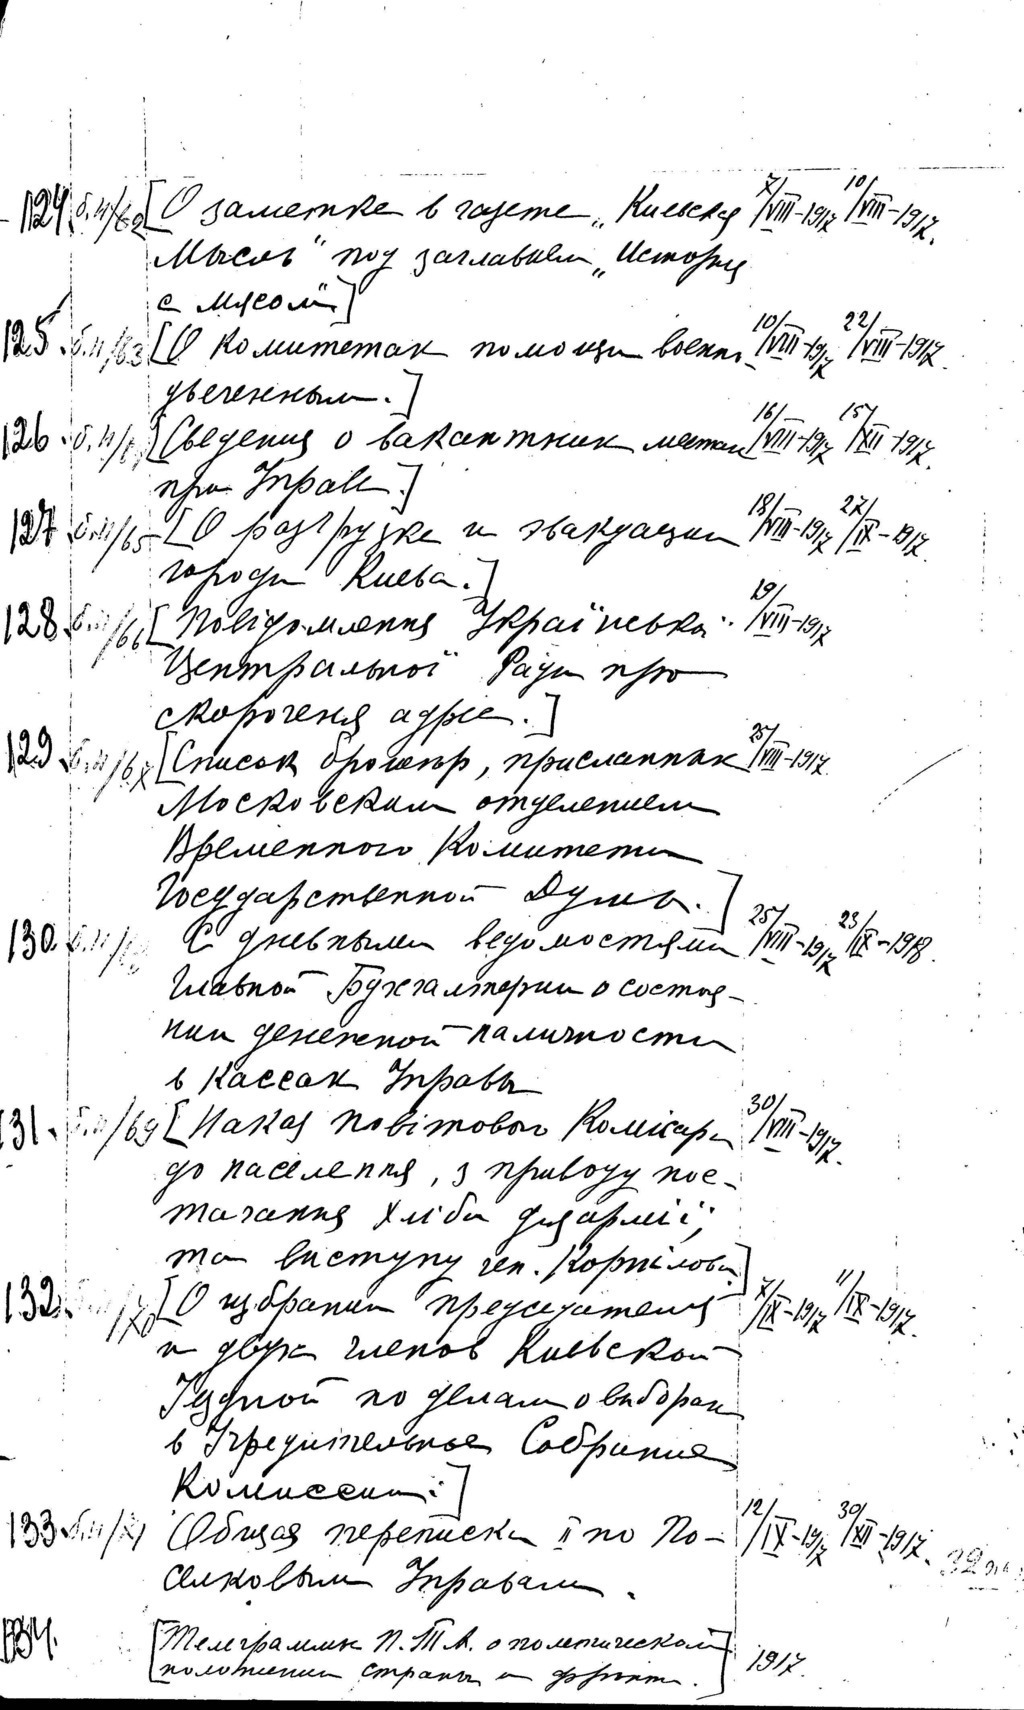 124. б.н/62 [О заметке в газете „Киевская 7/VIII-1917 10/VIII-1917.
Мысль" под заглавием „История
с мясом"]
125. б.н/63 [О комитетах помощи военно- 10/VIII-1917 22/VIII-1917.
увечен­ным.]
126. б.н/ [Сведения о вакантных местах 16/VIII-1917 15/XII-1917.
при Управе.]
127 б.н/65 [О разгрузке и эвакуации 18/VIII-1917 27/IX-1917.
города Киева.]
128. б.н/66 [Повідомлення Українська 19/VIII-1917
Центральної Ради про
скорочення адрес.]
129. б.н/67 [Список брошюр, присланных 25/VIII-1917.
Московским отделением
Временного Комитета
Государственной Думы.]
130. б.н/ С дневными ведомостями 25/VIII-1917 23/IX-1918.
Главной Бухгалтерии о состоя-
нии денежной наличности
в кассах Управы
131. б.н/69 [Наказ повітового Комісара 30/VIII-1917.
до населення, з приводу пос-
тачання хліба для армії,
та виступу ген. Корнілова.]
132. /70 [О избрании председателя 7/IX-1917 11/IX-1917.
и двух членов Киевской
Уездной по делам о выборах
в Учредительное Собрание
Комиссии.]
133. б.н/71 Общая переписка II по По- 12/IX-1917 30/XII-1917.
селковым Управам.
134. [Телеграммы П.Т.А. о политическом
положении страны и фронта.] 1917.